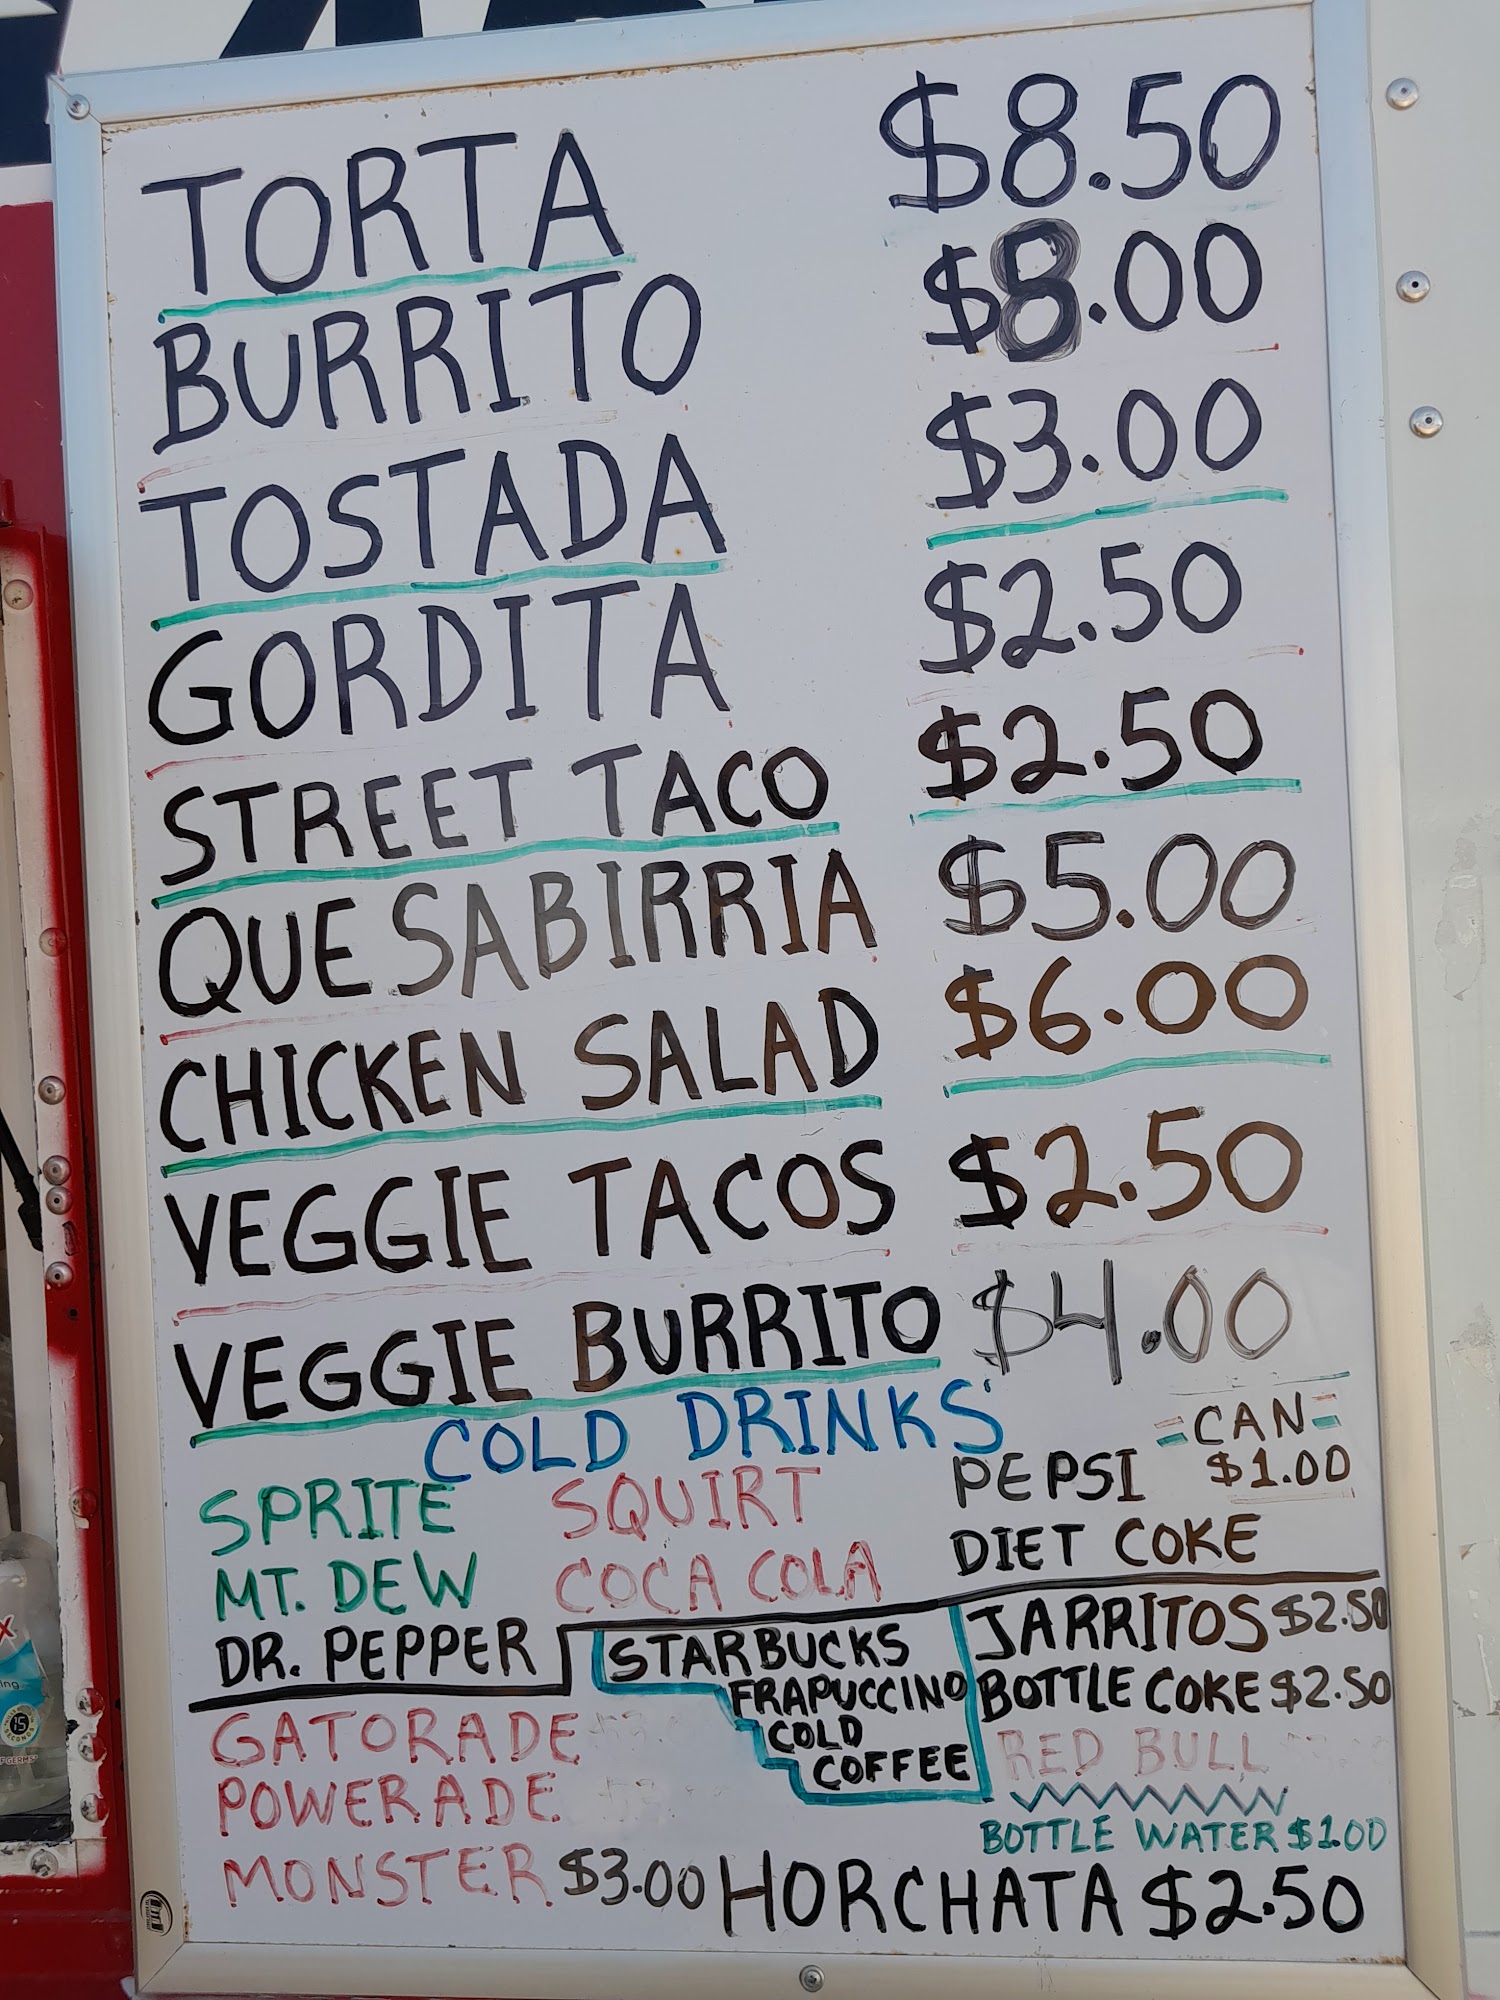 TORTA $8.50
BURRITO $8.00
TOSTADA $3.00
GORDITA $2.50
STREET TACO $2.50
QUESABIRRIA $5.00
CHICKEN SALAD $6.00
VEGGIE TACOS $2.50
VEGGIE BURRITO $4.00
COLD DRINKS
=CAN=
$1.00
SPRITE SQUIRT PEPSI
MT. DEW COCA COLA DIET COKE
DR. PEPPER
STARBUCKS
FRAPUCCINO
COLD
COFFEE
JARRITOS $2.50
BOTTLE COKE $2.50
GATORADE
RED BULL
POWERADE
BOTTLE WATER $1.00
MONSTER $3.00 HORCHATA $2.50